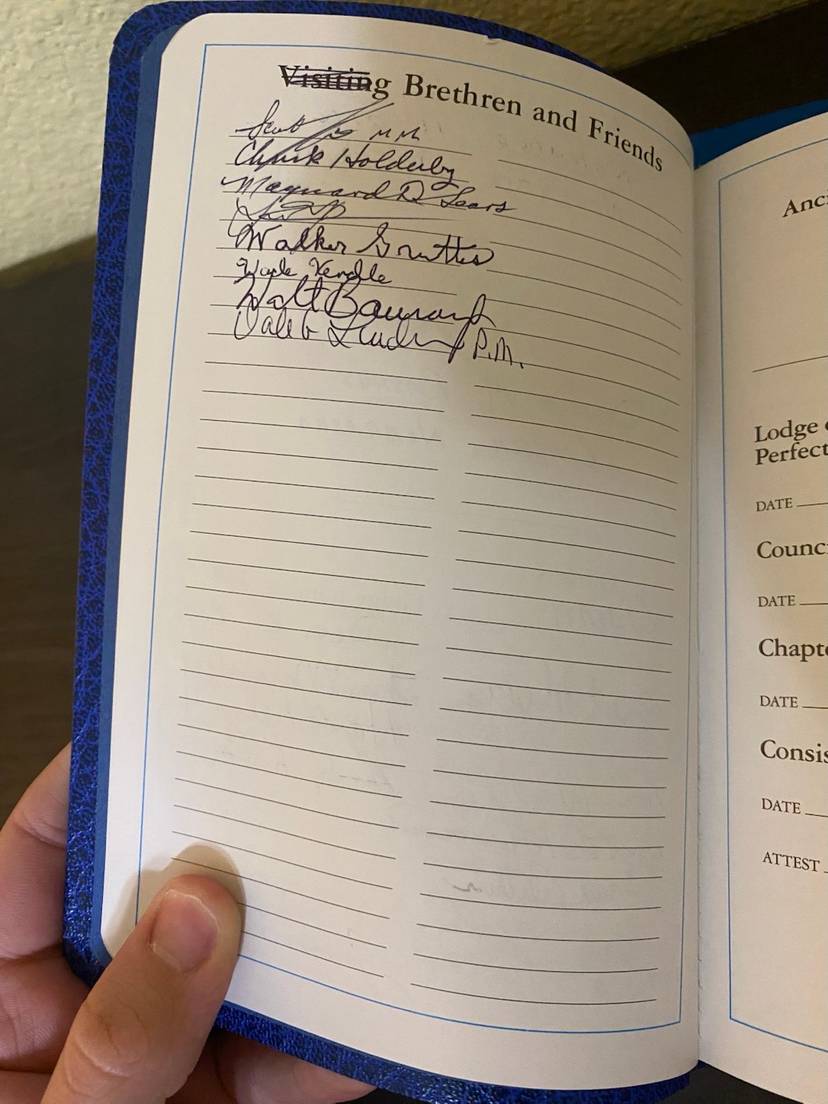 Visiting Brethren and Friends
Scott MM
Chuck Holderby
Maynard D. Sears
Walker
Wade
Walt
Caleb P.M.
Anc
Lodge
Perfect
DATE
Counc
DATE
Chapt
DATE
Consis
DATE
ATTEST